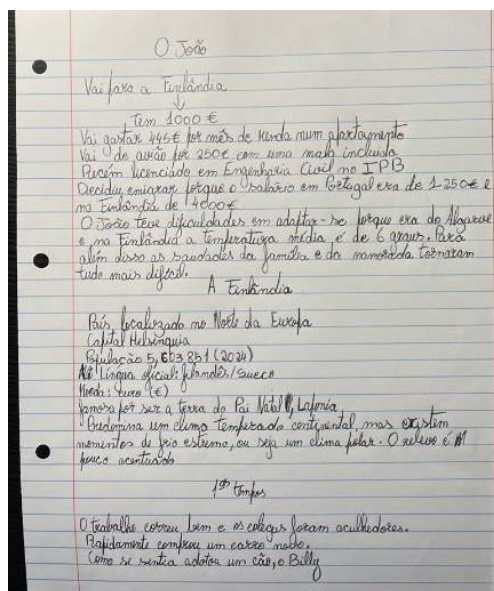 O João
Vai para a Finlândia
↓
tem 1000 €
Vai gastar 445€ por mês de renda num apartamento
Vai de avião por 250€ com uma mala incluida
Recém licenciado em Engenharia Civil no IPB
Decidiu emigrar porque o salário em Portugal era de 1250€ e
na Finlândia de 4000€
O João teve dificuldades em adaptar-se porque era do Algarve
e na Finlândia a temperatura média é de 6 graus. Para
além disso as saudades da família e da namorada tornaram
tudo mais difícil.
A Finlândia
País localizado no Norte da Europa
Capital Helsínquia
População 5,603 851 (2024)
Língua oficial: filandês/sueco
Moeda: euro (€)
famosa por ser a terra do Pai Natal, Lapónia
Predomina um clima temperado continental, mas existem
momentos de frio extremo, ou seja um clima polar. O relevo é
pouco acentuado
1ºs tempos
O trabalho correu bem e os colegas foram aculhedores.
Rapidamente comprou um carro novo.
Como se sentia adotou um cão, o Billy